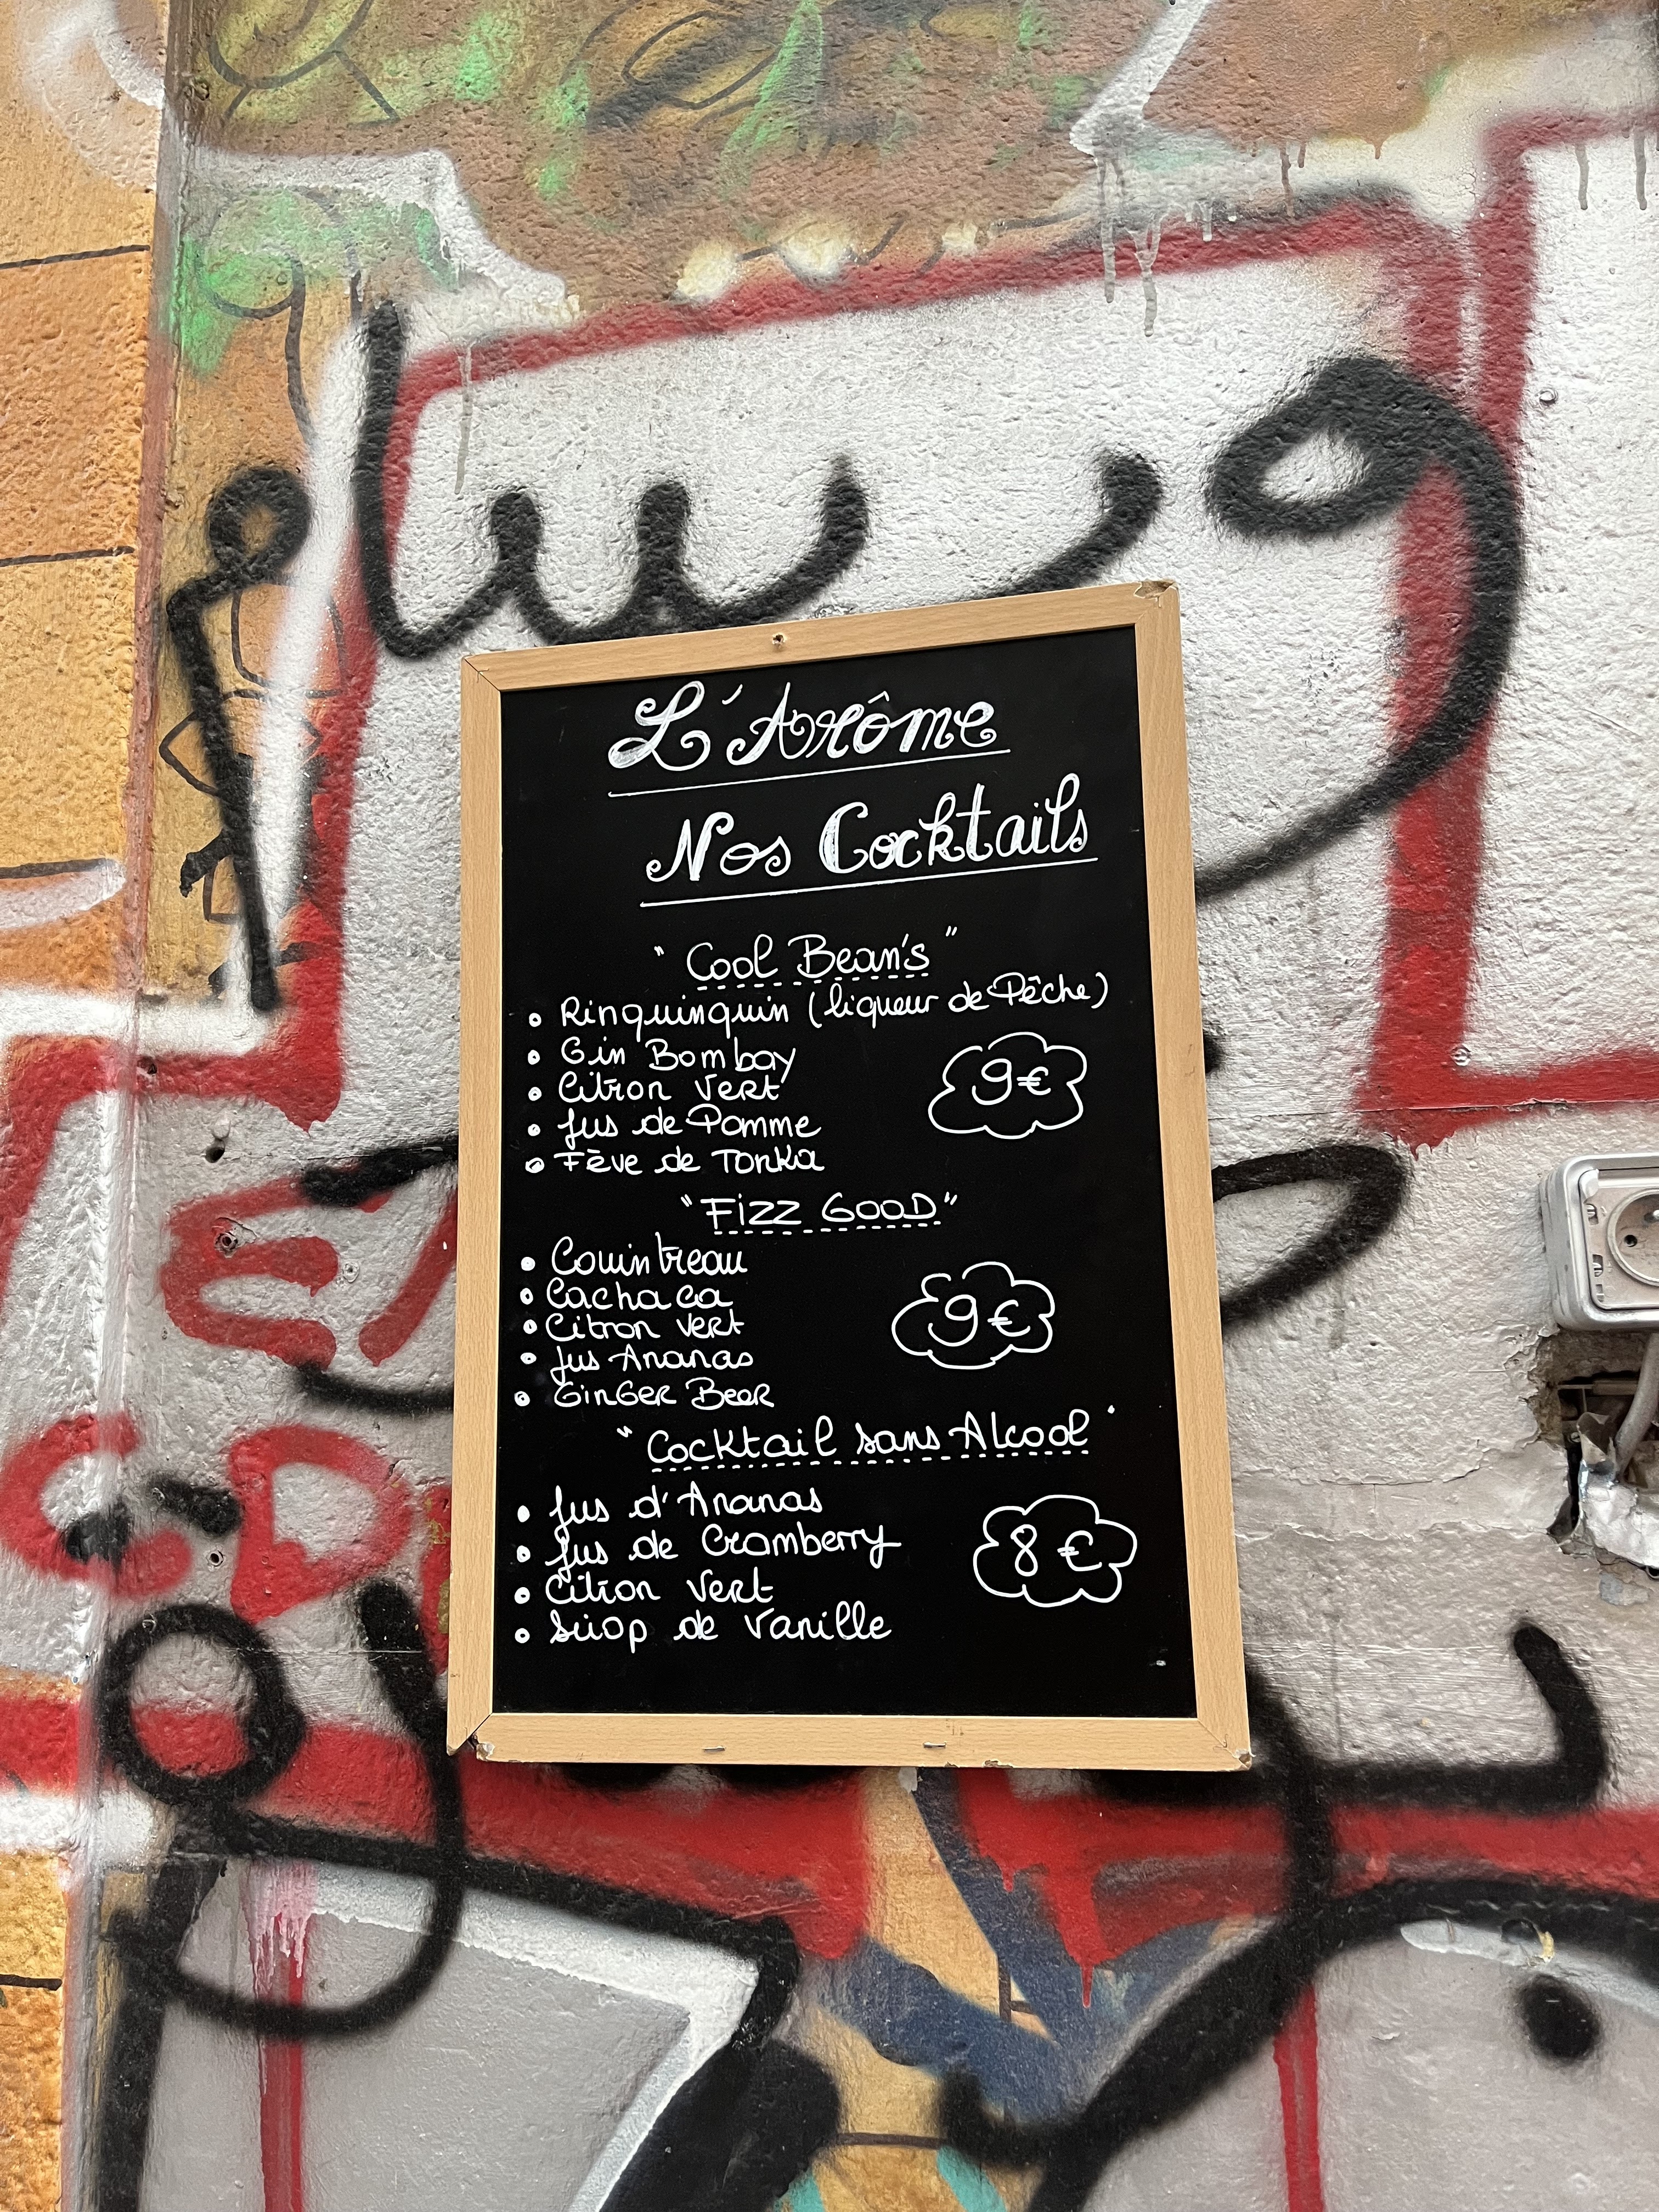 L'Arôme
Nos Cocktails
"Cool Bean's"
Rinquinquin (liqueur de Pêche)
Gin Bombay
Citron Vert
Jus de Pomme
Fève de Tonka
9€
"Fizz Good"
Couintreau
Cachaca
Citron vert
Jus Ananas
GinGer Beer
9€
"Cocktail sans Alcool"
Jus d'Ananas
Jus de Cramberry
Citron Vert
Sirop de Vanille
8€